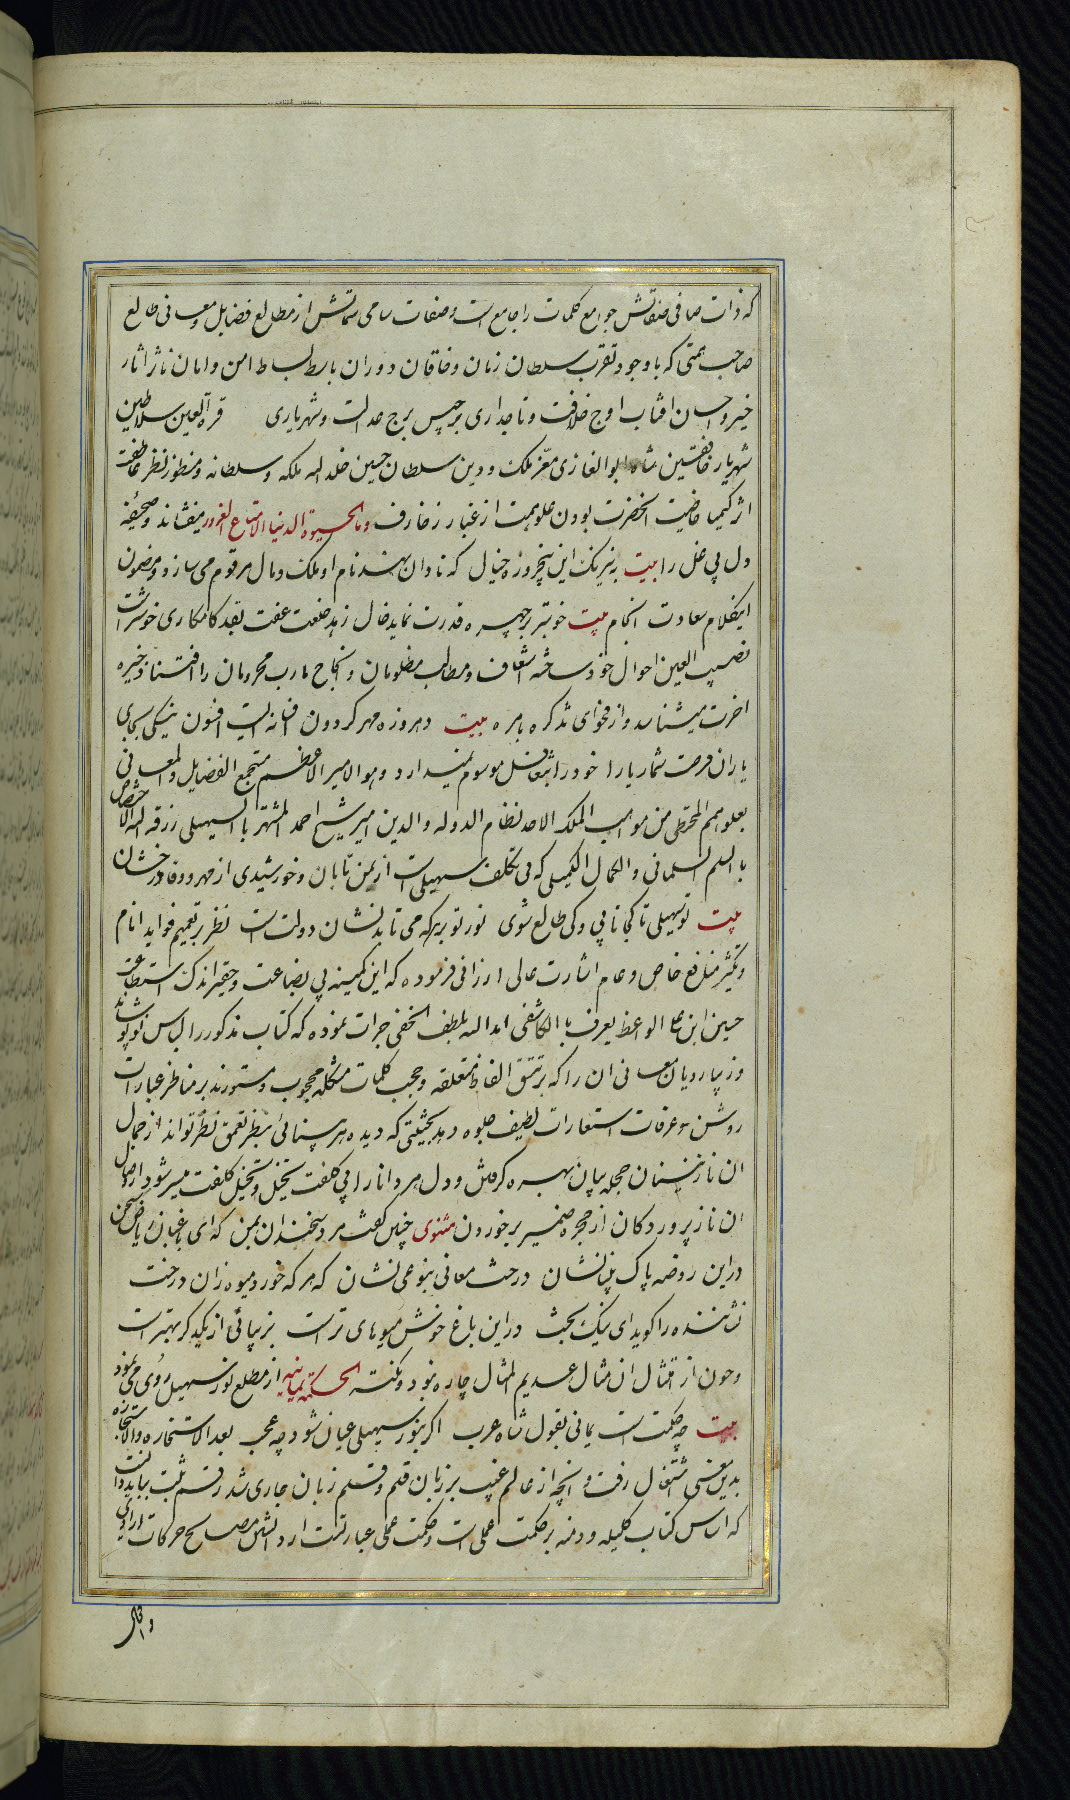 که ذات صافی صفاتش جوامع کلمات را جامع است و صفات سامی سماتش از مطالع فضایل و معانی طالع
صاحب همتی که با وجود تقرب سلطان زمان و خاقان دوران باسط بساط امن و امان ناثر اثار
خیر و احسان افتاب اوج خلافت و تاجداری برجیس برج عدالت و شهریاری قرة العین سلاطین
شهریار خافقین شاه ابوالغازی معز ملک و دین سلطان حسین خلد الله ملکه و سلطانه و منظور نظر عاطفت
اثر کیمیا خاصیت انحضرت بودن علو همت از غبار زخارف وما الحیوة الدنیا الا متاع الغرور میفشاند و صحیفه
دل بی غل را بیت به نیرنک این پنچروزه خیال که نادان نهند نام او ملک و مال مرقوم می سازد و مضمون
اینکلام سعادت انجام بیت خوبتر بر چهره قدرت نماید خال زهد خلعت عفت بقد کامکاری خوشتر است
نصب العین احوال خود ساخته اسعاف مطالب مظلومان و انجاح مارب محرومان را افتناء ذخیره
اخرت میشناسد و از فحوای تذکره باهره بیت ده روزه مهر کردون افسانه ایست افسون نیکی بجای
یاران فرصت شمار یارا خود را بتغافل موسوم نمیدارد و هو الامیر الاعظم مجمع الفضایل والمعانی
بعلو الهمم المحتظی من مواهب الملک الاحد نظام الدوله والدین امیر شیخ احمد المشتهر بالسهیلی رزقه الله الاختصاص
بالسلم السلمانی والکمال الکمیلی که بی تکلف سهیلی است از یمن تابان و خورشیدی از مهر و وفا درخشان
بیت تو سهیلی تا کجا تابی و کی طالع شوی نور تو بر هر که می تابد نشان دولت است نظر بر تعمیم فواید انام
و تکثیر منافع خاص و عام اشارت عالی ارزانی فرموده که این کمینه بی بضاعت و حقیر اندک استطاعت
حسین ابن علی الواعظ یعرف بالکاشفی ایده الله بلطفه الخفی جرات نموده که کتاب مذکور را لباس نو پوشاند
و زیبا رویان معانی ان را که بر تتق الفاظ متعلقه و حجب کلمات مشکله محجوب و مستورند بر مناظر عبارات
روشن و غرفات استعارات لطیف جلوه دهد بحیثیتی که دیده هر بینائی بنظر تعمق نظر تواند از جمال
ان نازنینان حجله بیان بهره کرفتن و دل هر دانا را بی کلفت تخیل و تخیل کلفت میسر شود از وصال
ان ناز پروردکان از حجره ضمیر برخوردن مثنوی چنین کفت مرد سخندان بمن که ای باغبان ریاض سخن
در این روضه پاک بنیا نشان درخت معانی بنوعی نشان که هر که خورد میوه زان درخت
نشاننده را کوید ای نیک بخت در این باغ خوش میوهای تر است بزیبائی از یکدکر بهتر است
و چون از امتثال ان مثال عدیم المثال چاره نبود و نکته الحکمة یمانیه از مطلع نور سهیل روی می نمود
بیت چه حکمت است یمانی بقول شاه عرب اکر بنور سهیلی عیان شود چه عجب بعد الاستخاره والاستجازه
بدین معنی اشتغال رفت و انچه از عالم غیب بر زبان قلم و قلم زبان جاری شد رقم ثبت یافت بباید دانست
که اساس کتاب کلیله و دمنه بر حکمت عملی است و حکمت عملی عبارتست از دانستن مصالح حرکات ارادی
و افعال